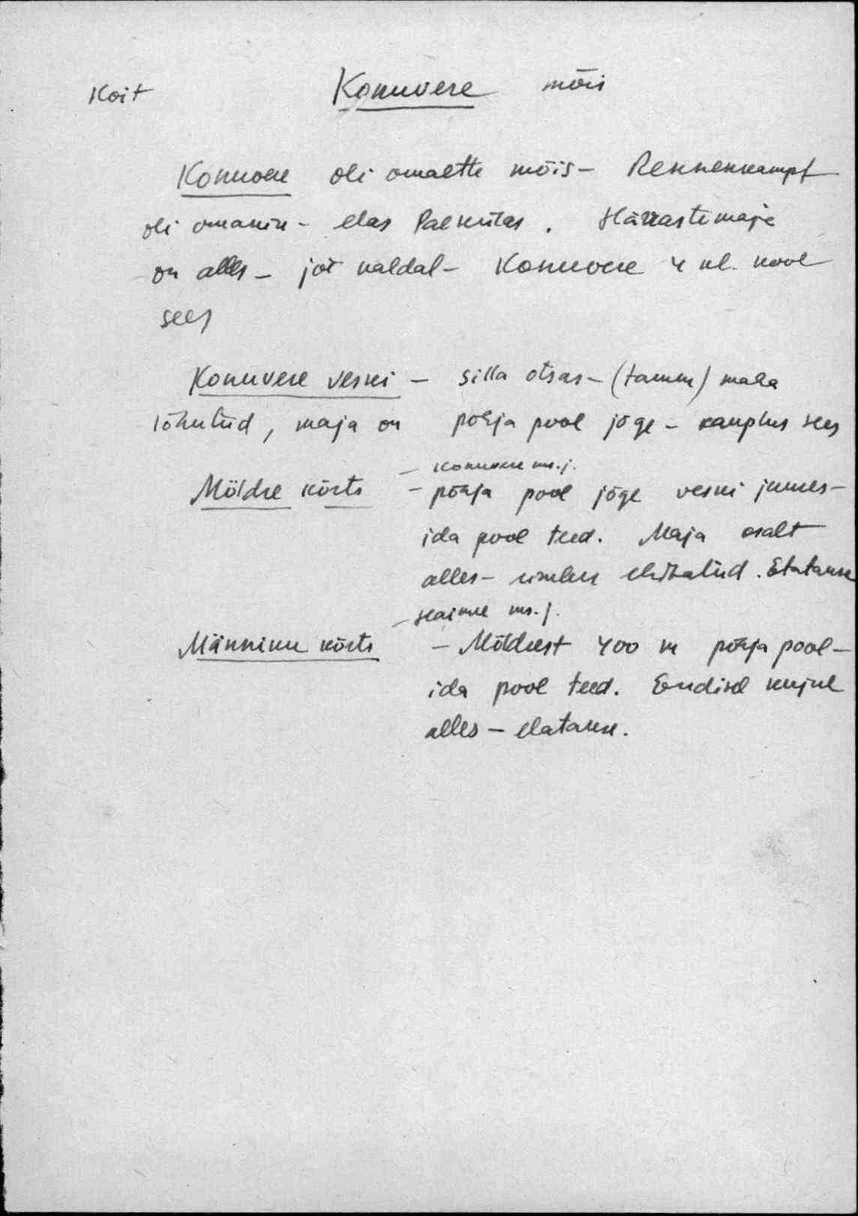 Koit Konuvere mõis
Konuvere oli omaette mõis - Rennenkampf
oli omanik - elas Paekülas. Härrastemaja
on alles - jõe kaldal - Konuvere 4 kl. kool
sees
Konuvere veski - silla otsas - (tamm) maha
lõhutud, maja on põhja pool jõge - kauplus sees
- Konuvere ms. j.
Möldre kõrts - põhja pool jõge veski juures -
ida pool teed. Maja osalt
alles - ümber ehitatud. Elatakse
- ms. j.
Männiku kõrts - Möldrest 400 m põhja pool -
ida pool teed. Endisel kujul
alles - elatakse.